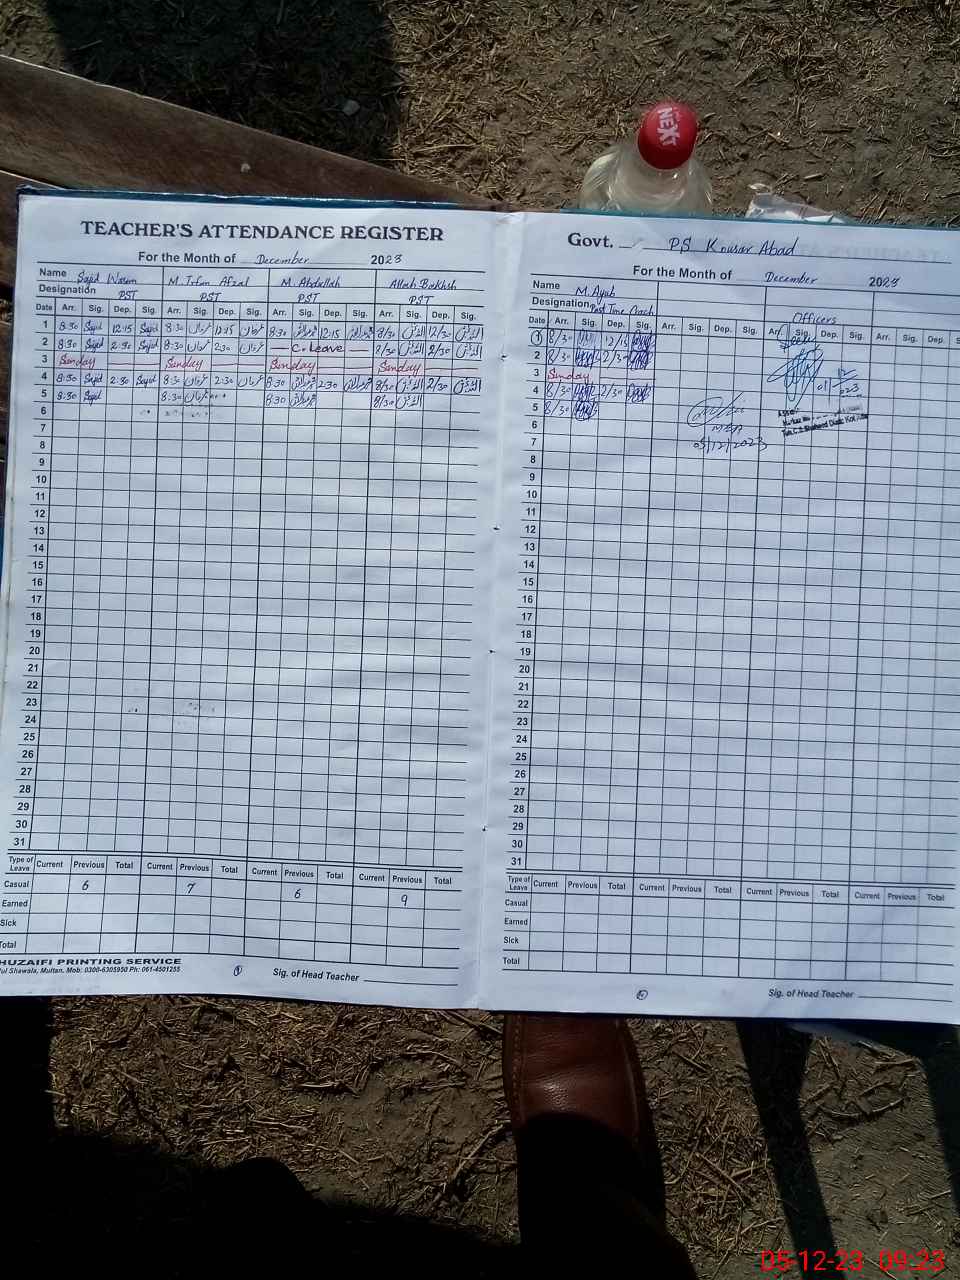 NEXT
TEACHER'S ATTENDANCE REGISTER
For the Month of December 2023
Name Sajid Wasim M. Irfan Afzal M. Abdullah Allah Bakhsh
Designation PST PST PST PST
Date Arr. Sig. Dep. Sig. Arr. Sig. Dep. Sig. Arr. Sig. Dep. Sig. Arr. Sig. Dep. Sig.
1 8:30 Sajid 12:15 Sajid 8:30 12:15 8:30 12:15 8/30 12/30
2 8:30 Sajid 2:30 Sajid 8:30 2:30 C. Leave 8/30 2/30
3 Sunday Sunday Sunday Sunday
4 8:30 Sajid 2:30 Sajid 8:30 2:30 8:30 2:30 8/30 2/30
5 8:30 Sajid 8:30 8:30 8/30
6
7
8
9
10
11
12
13
14
15
16
17
18
19
20
21
22
23
24
25
26
27
28
29
30
31
Type of Leave Current Previous Total Current Previous Total Current Previous Total Current Previous Total
Casual 6 7 6 9
Earned
Sick
Total
HUZAIFI PRINTING SERVICE
Shawala, Multan. Mob: 0300-6305950 Ph: 061-4501255
Sig. of Head Teacher
Govt. PS Kousar Abad
For the Month of December 2023
Name M. Ayub
Designation Part Time Officers
Date Arr. Sig. Dep. Sig. Arr. Sig. Dep. Sig. Arr. Sig. Dep. Sig. Arr. Sig. Dep.
1 8/30 12/15
2 8/30 2/30
3 Sunday
4 8/30 2/30
5 8/30
6 MEA
7 05/12/2023
8
9
10
11
12
13
14
15
16
17
18
19
20
21
22
23
24
25
26
27
28
29
30
31
Type of Leave Current Previous Total Current Previous Total Current Previous Total Current Previous Total
Casual
Earned
Sick
Total
Sig. of Head Teacher
05-12-23 09:23